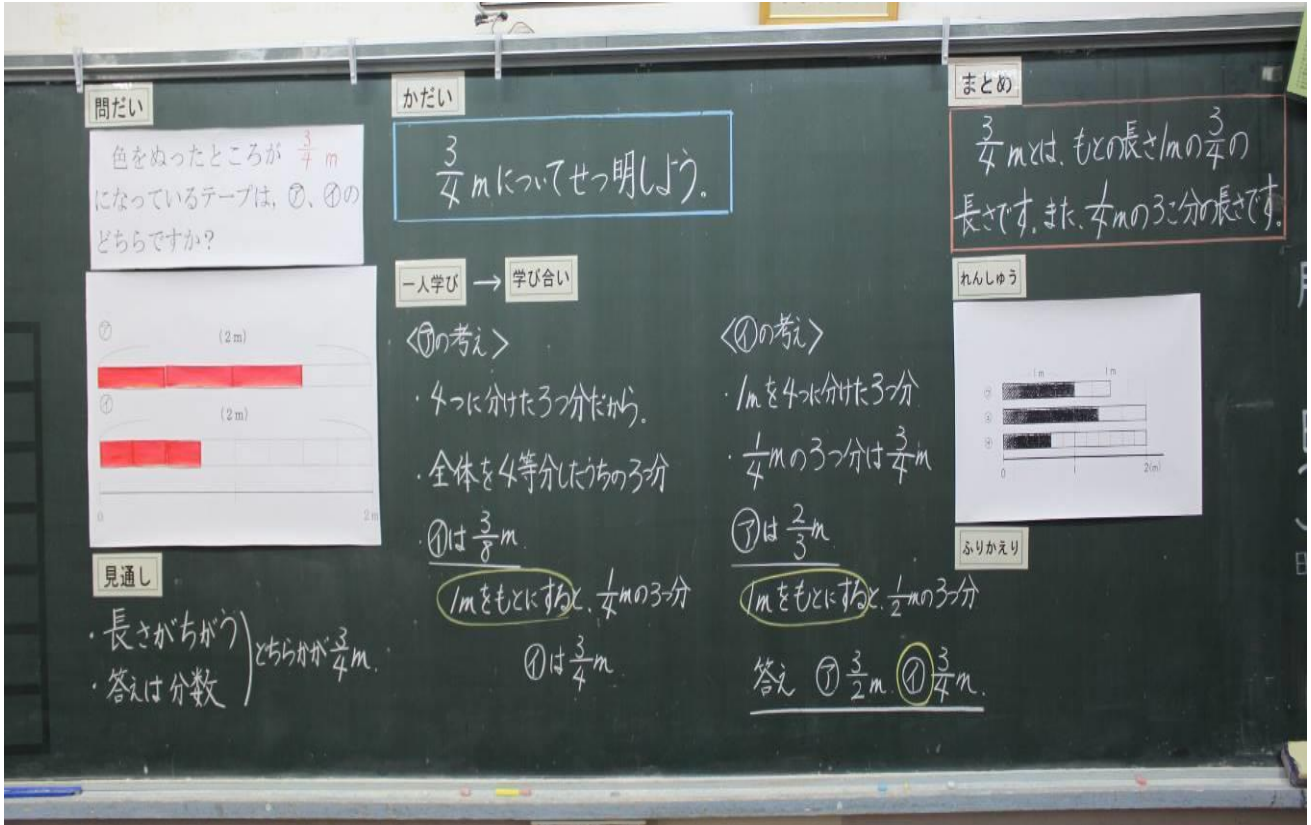 問だい
色をぬったところが 3/4 m
になっているテープは、㋐、㋑の
どちらですか?
㋐
(2m)
㋑
(2m)
0 2m
見通し
・長さがちがう
・答えは分数
どちらかが3/4m.
かだい
3/4mについてせつ明しよう。
一人学び → 学び合い
〈㋐の考え〉
・4つに分けた3つ分だから。
・全体を4等分したうちの3つ分
・㋑は3/8m.
1mをもとにすると、1/4mの3つ分
㋑は3/4m.
〈㋑の考え〉
・1mを4つに分けた3つ分
・1/4mの3つ分は3/4m
㋐は2/3m.
1mをもとにすると、1/2mの3つ分
答え ㋐3/2m. ㋑3/4m.
まとめ
3/4mとは、もとの長さ1mの3/4の
長さです。また、1/4mの3こ分の長さです。
れんしゅう
1m 1m
0 1 2(m)
ふりかえり